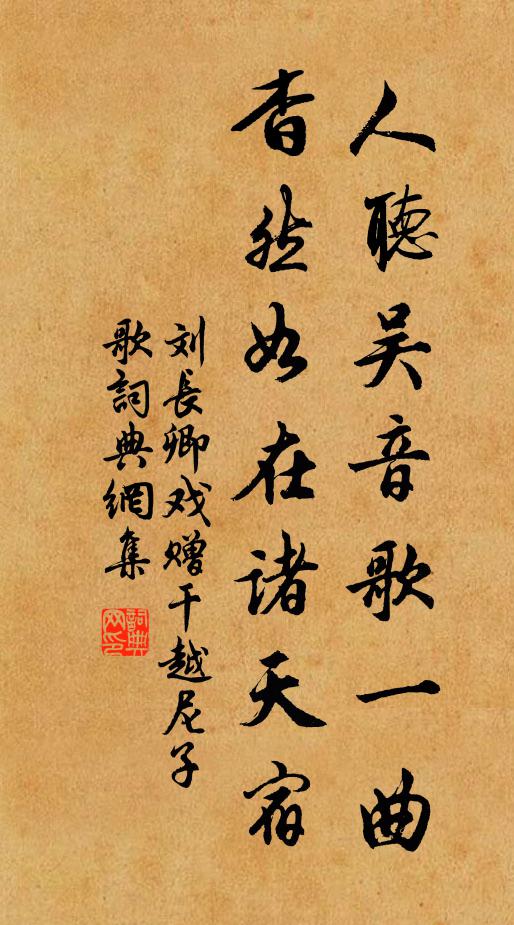 人聽吴音歌一曲
杳然如在诸天宿
刘長卿戏赠干越尼子
歌詞典網集
詞典
网印